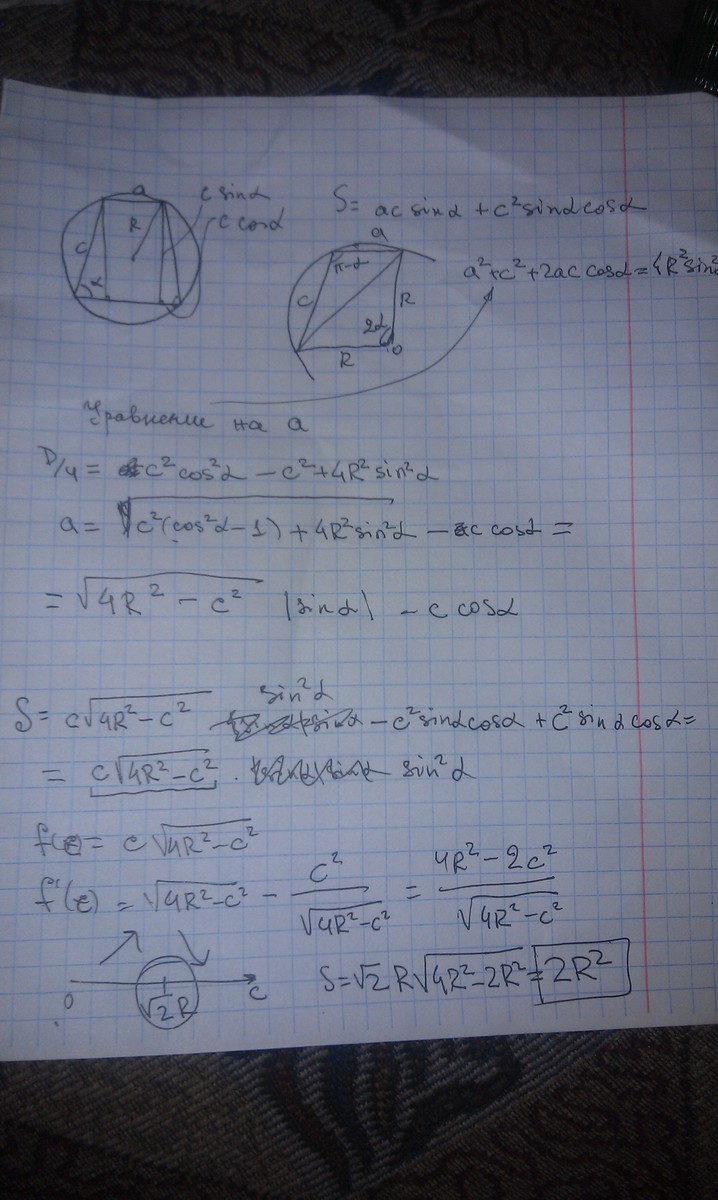 a
c sinα
c cosα
R
c
α
S= ac sinα + c² sinα cosα
a
π-α
c
R
2α
R
o
a²+c²+2ac cosα=4R² sin²
Уравнение на a
D/4 = c² cos²α − c²+4R² sin²α
a= √c²(cos²α−1) + 4R² sin²α − c cosα =
= √4R² − c² |sinα| − c cosα
sin²α
S= c√4R²−c² − c² sinα cosα + c² sinα cosα=
= c√4R²−c² · sin²α
f(c)= c √4R²−c²
f'(c) = √4R²−c² − c²/√4R²−c² = 4R²−2c²/√4R²−c²
0 √2R c
S=√2 R√4R²−2R² = 2R²